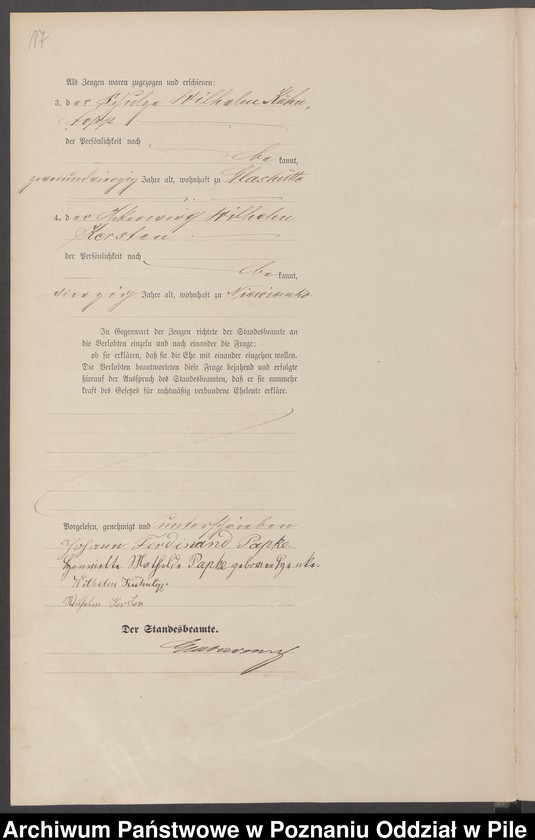 117
Als Zeugen waren zugezogen und erschienen:
3. der Schulze Wilhelm Kühn-
topp
der Persönlichkeit nach
bekannt,
zweiundvierzig Jahre alt, wohnhaft zu Glashütte
4. der Wilhelm
Kersten
der Persönlichkeit nach
bekannt,
vierzig Jahre alt, wohnhaft zu
In Gegenwart der Zeugen richtete der Standesbeamte an
die Verlobten einzeln und nach einander die Frage:
ob sie erklären, daß sie die Ehe mit einander eingehen wollen.
Die Verlobten beantworteten diese Frage bejahend und erfolgte
hierauf der Ausspruch des Standesbeamten, daß er sie nunmehr
kraft des Gesetzes für rechtmäßig verbundene Eheleute erkläre.
Vorgelesen, genehmigt und unterschrieben
Johann Ferdinand Papke.
Henriette Mathilde Papke geborene
Wilhelm Kühntopp
Wilhelm Kersten
Der Standesbeamte.
Archiwum Państwowe w Poznaniu Oddział w Pile